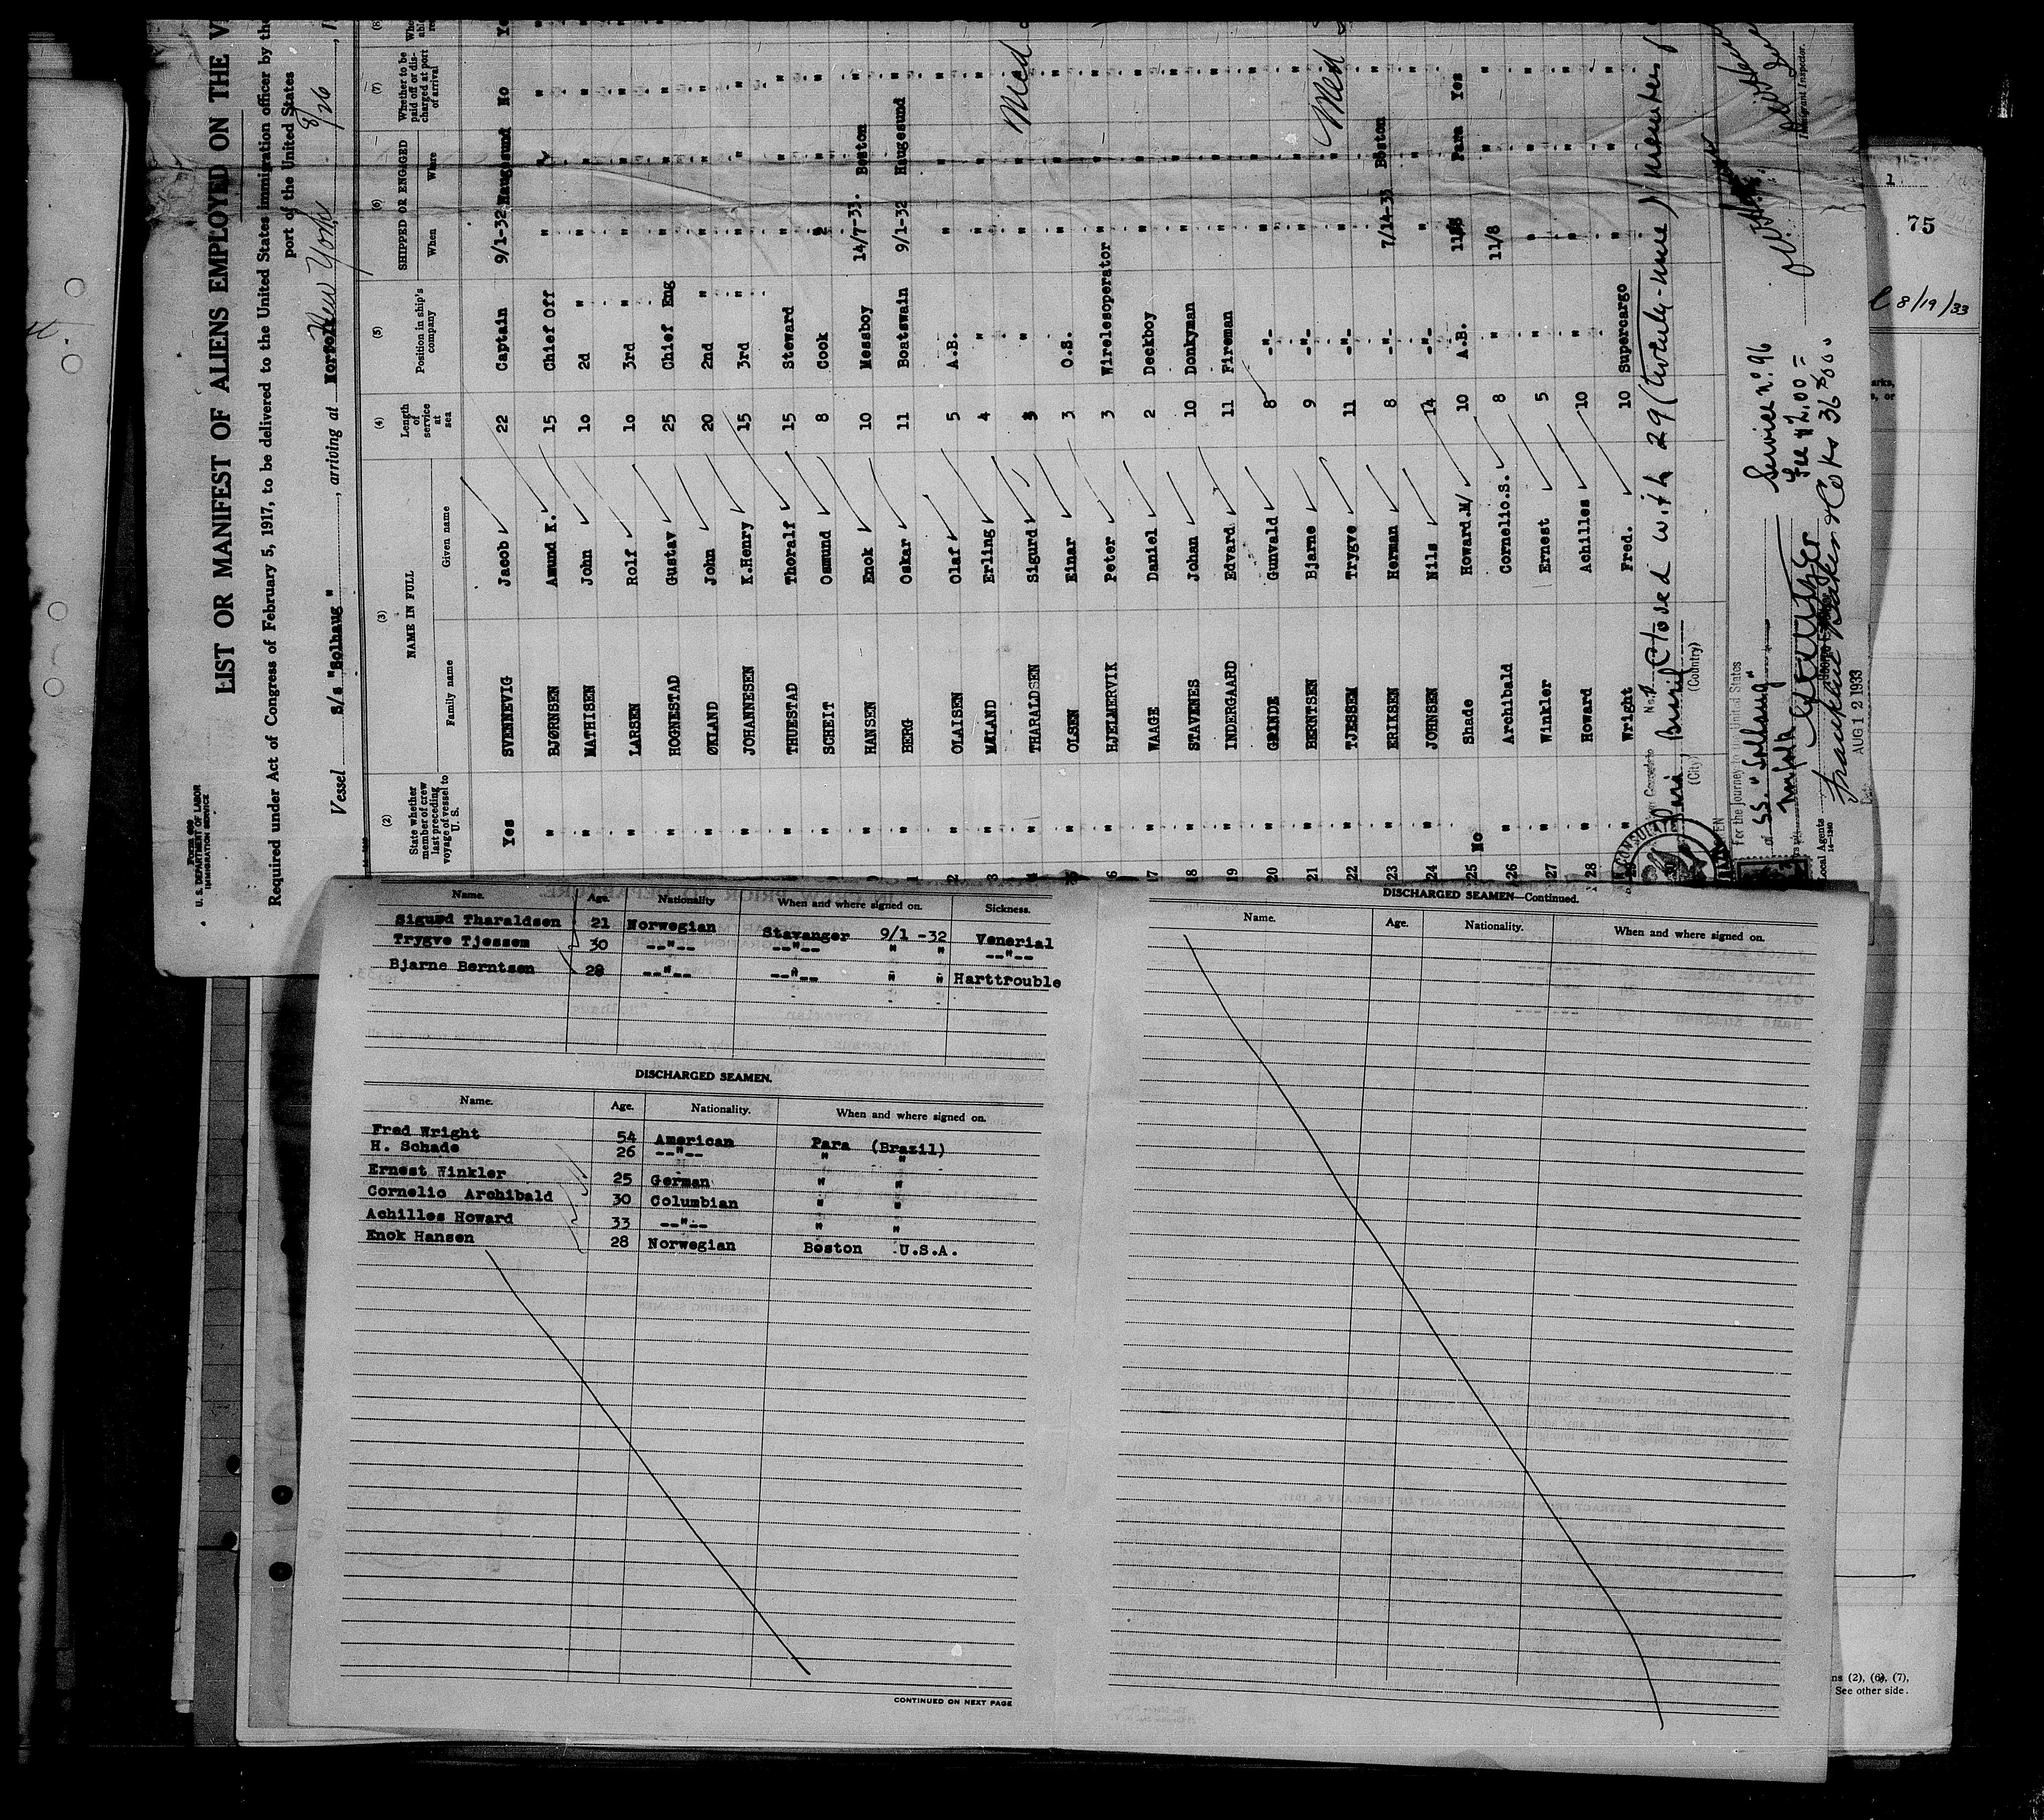 Form 689
U. S. DEPARTMENT OF LABOR
IMMIGRATION SERVICE
LIST OR MANIFEST OF ALIENS EMPLOYED ON THE V
Required under Act of Congress of February 5, 1917, to be delivered to the United States immigration officer by the
port of the United States
Vessel S/s "Solhaug", arriving at Norfolk New York 8/26
(2) (3) (4) (5) (6) (7) (8)
State whether member of crew last preceding voyage of vessel to U. S.
NAME IN FULL
Family name Given name
Length of service at sea
Position in ship's company
SHIPPED OR ENGAGED
When Where
Whether to be paid off or discharged at port of arrival
Yes SVENNEVIG Jacob 22 Captain 9/1-32 Haugesund No
" BJØRNSEN Amund K. 15 Chief Off " " "
" MATHISEN John 10 2d " " " "
" LARSEN Rolf 10 3rd " " " "
" HOGNESTAD Gustav 25 Chief Eng " " "
" ØKLAND John 20 2nd " " " "
" JOHANNESEN K.Henry 15 3rd " " " "
" THUESTAD Thoralf 15 Steward " " "
" SCHEIT Osmund 8 Cook " " "
" HANSEN Enok 10 Messboy 14/7-33. Boston "
" BERG Oskar 11 Boatswain 9/1-32 Haugesund "
2 " OLAISEN Olaf 5 A.B. " " "
3 " MÆLAND Erling 4 " " " "
4 " THARALDSEN Sigurd 3 " " " " Med
5 " OLSEN Einar 3 O.S. " " "
6 " HJELMERVIK Peter 3 Wirelesoperator " " "
17 " WAAGE Daniel 2 Deckboy " " "
18 " STAVENES Johan 10 Donkyman " " "
19 " INDERGAARD Edvard 11 Fireman " " "
20 " GRINDE Gunvald 8 -"- " " "
21 " BERNTSEN Bjarne 9 -"- " " "
22 " TJESSEM Trygve 11 -"- " " " Med
23 " ERIKSEN Herman 8 -"- 7/14-33 Boston "
24 " JOHNSEN Nils 14 -"- " " "
25 No Shade Howard.M 10 A.B. 11/8 Para Yes
26 " Archibald Cornelio.S. 8 " 11/8 " "
27 " Winkler Ernest 5 " " " "
28 " Howard Achilles 10 " " " "
29 " Wright Fred. 10 Supercargo " " "
Closed with 29 (twenty-nine) members
Para Brazil
(City) (Country)
for the journey to the United States
SS. "Solhaug"
Service no. 96
Fee $2.00 =
Local Agents
14-1240
AUG 12 1933
Immigrant Inspector.
1
75
8/19/33
Name. Age. Nationality When and where signed on. Sickness.
Sigurd Tharaldsen 21 Norwegian Stavanger 9/1 -32 Venerial
Trygve Tjessem 30 --"-- --"-- " " --"--
Bjarne Berntsen 28 --"-- --"-- " " Harttrouble
DISCHARGED SEAMEN.
Name. Age. Nationality. When and where signed on.
Fred Wright 54 American Para (Brazil)
H. Schade 26 --"-- " "
Ernest Winkler 25 German " "
Cornelio Archibald 30 Columbian " "
Achilles Howard 33 --"-- " "
Enok Hansen 28 Norwegian Boston U.S.A.
CONTINUED ON NEXT PAGE
DISCHARGED SEAMEN—Continued.
Name. Age. Nationality. When and where signed on.
ns (2), (6), (7),
See other side.